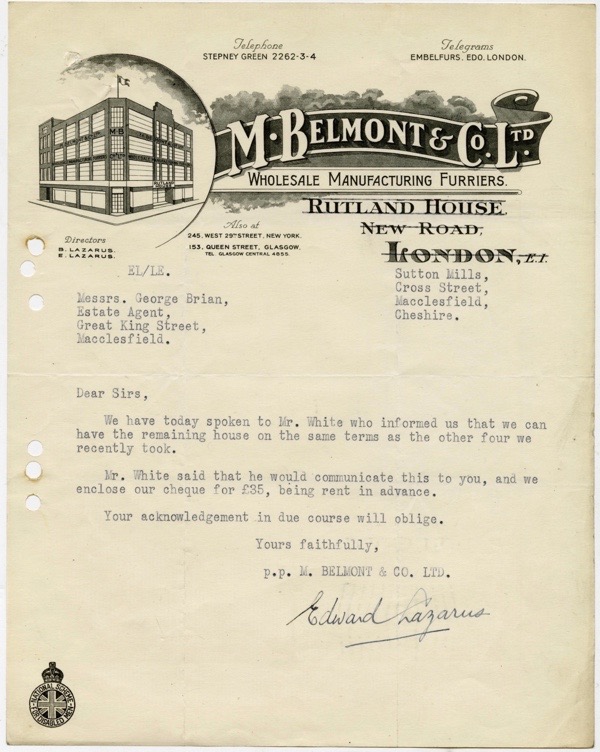 Telephone
STEPNEY GREEN 2262-3-4
Telegrams
EMBELFURS, EDO, LONDON.
M·B
M. BELMONT & CO. LTD
WHOLESALE MANUFACTURING FURRIERS.
RUTLAND HOUSE,
NEW ROAD,
LONDON, E.1.
Also at
245, WEST 29TH STREET, NEW YORK.
153, QUEEN STREET, GLASGOW.
TEL GLASGOW CENTRAL 4855.
Directors
B. LAZARUS.
E. LAZARUS.
EL/LE.
Sutton Mills,
Cross Street,
Macclesfield,
Cheshire.
Messrs. George Brian,
Estate Agent,
Great King Street,
Macclesfield.
Dear Sirs,
We have today spoken to Mr. White who informed us that we can
have the remaining house on the same terms as the other four we
recently took.
Mr. White said that he would communicate this to you, and we
enclose our cheque for £35, being rent in advance.
Your acknowledgement in due course will oblige.
Yours faithfully,
p.p. M. BELMONT & CO. LTD.
Edward Lazarus
NATIONAL SCHEME
FOR DISABLED MEN